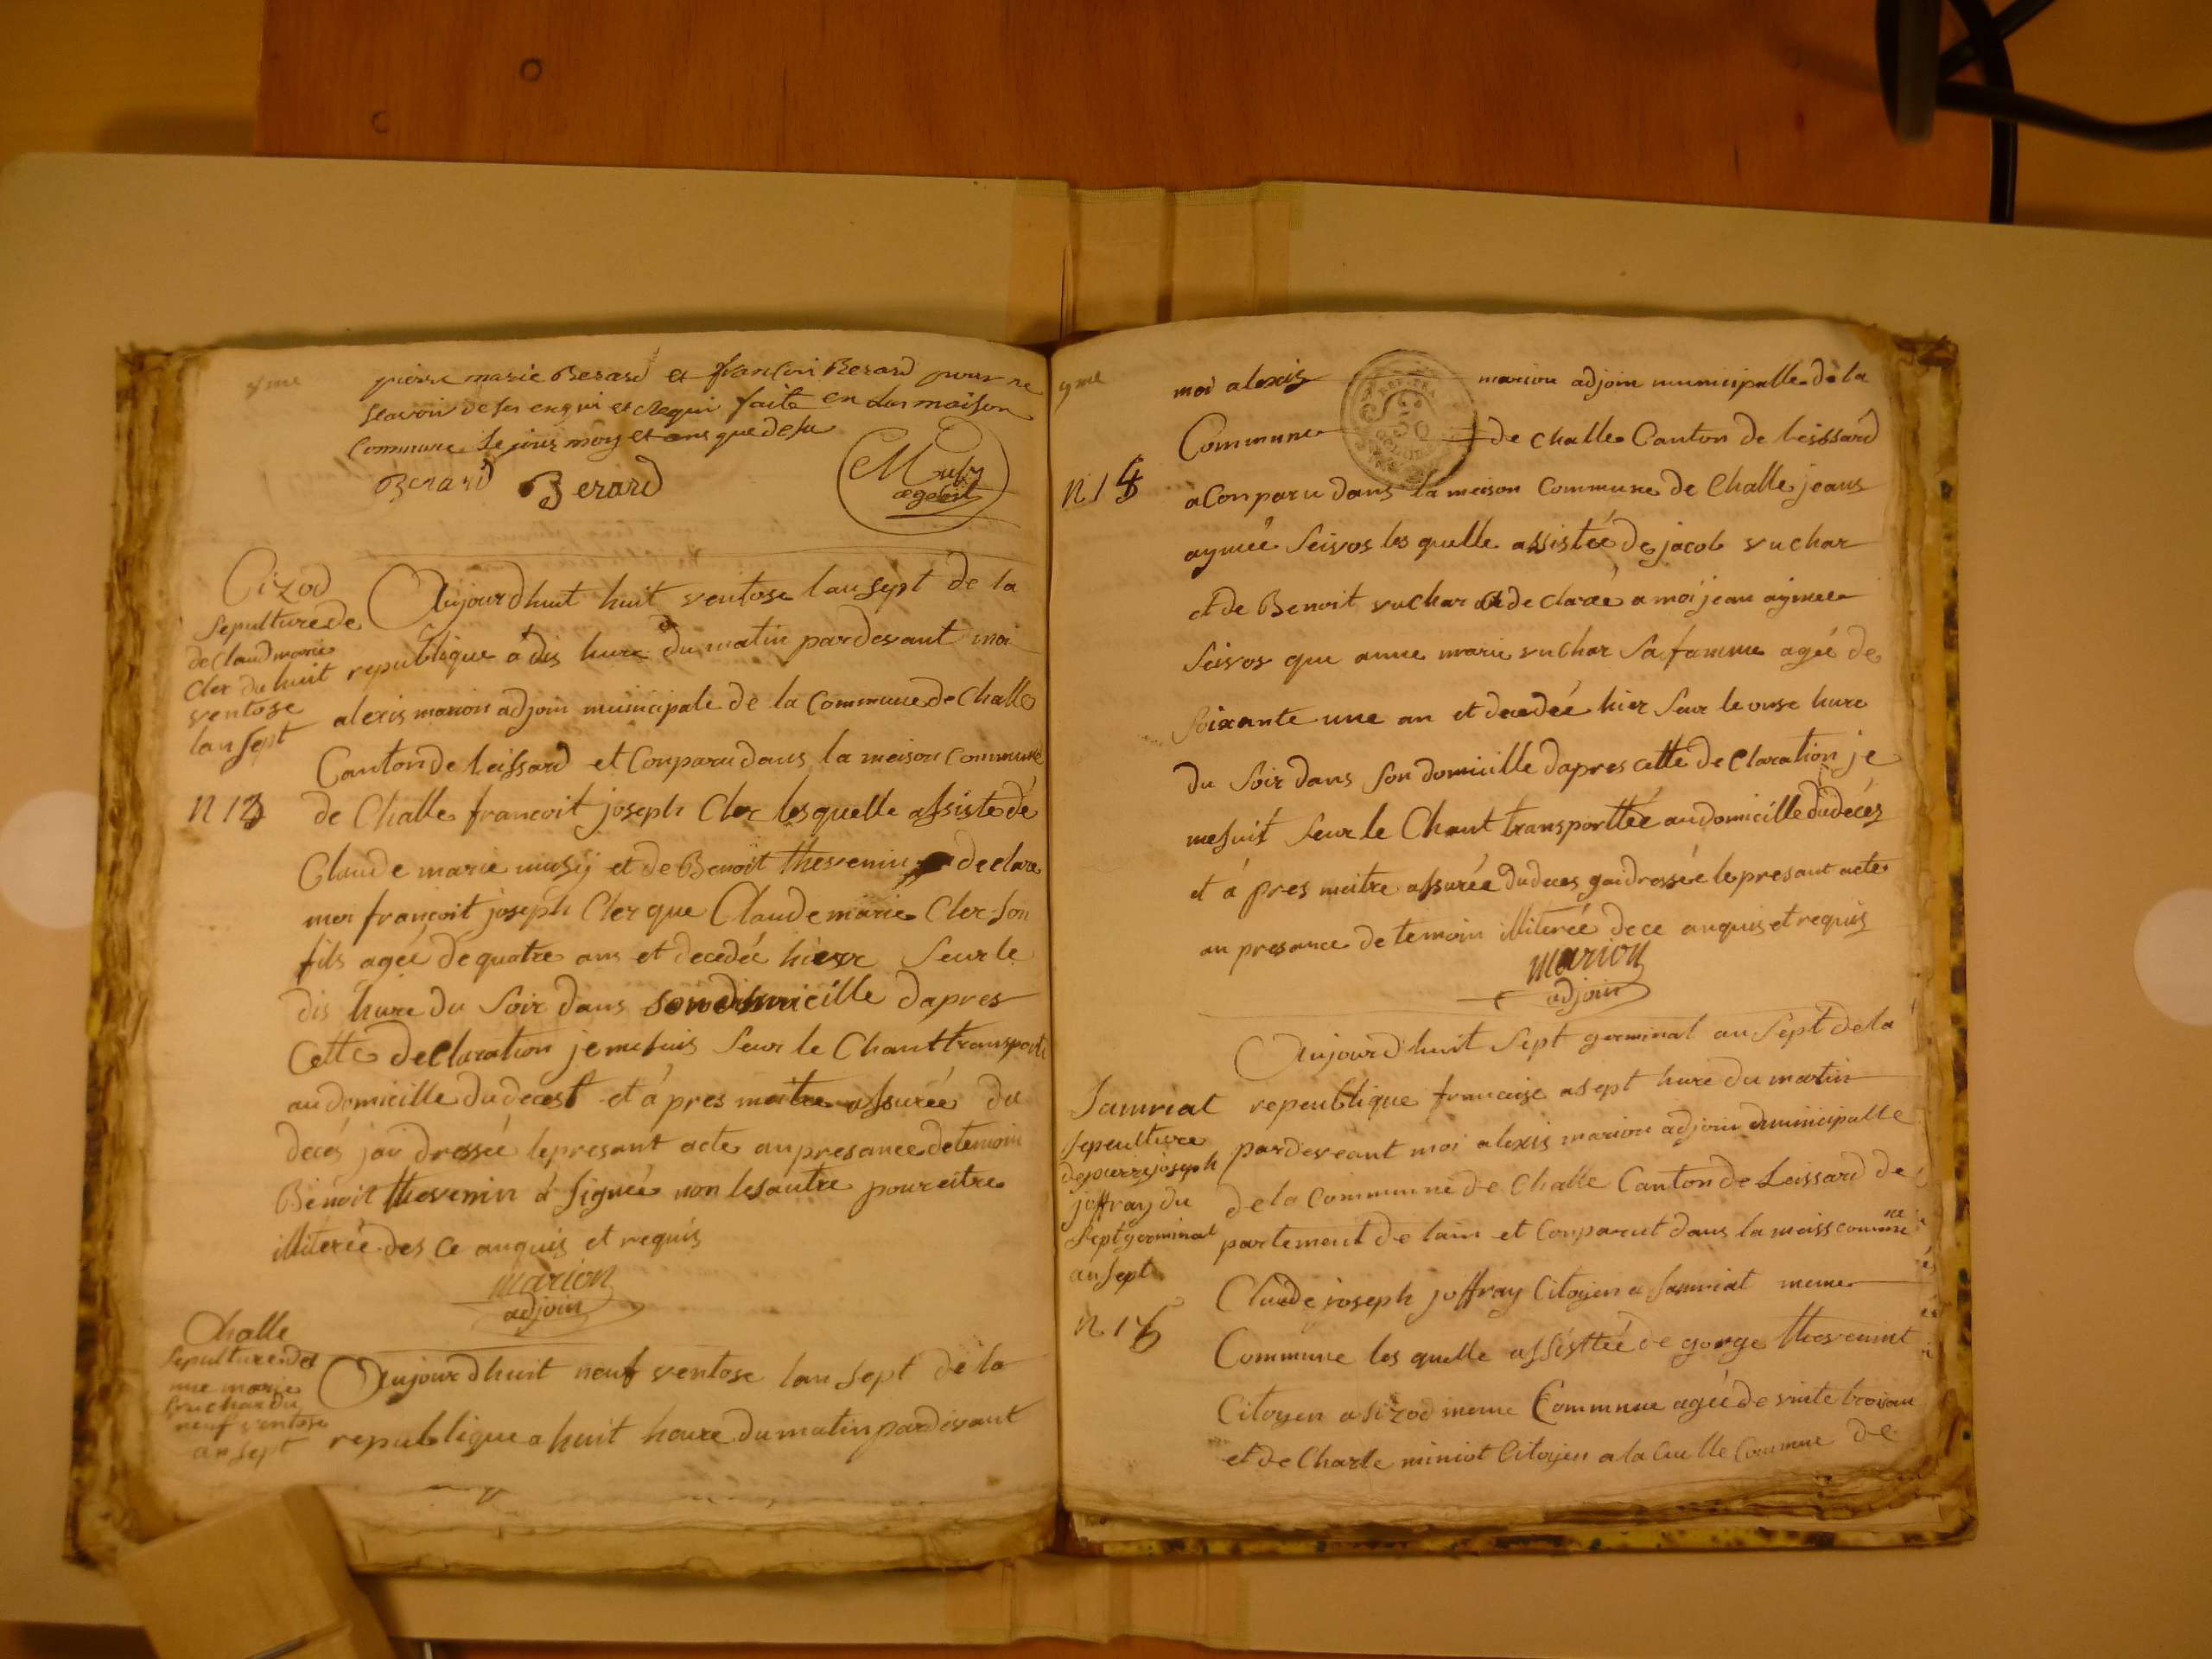 pierre marie Berard et françoi Berard pour ne
scavoir de ses enqui et Requi faite en dar maison
Commune le jour moy et ans que desu
Berard Berard
Muly
agent
Cizod
Sepulture de
de Claud marie
Cler du huit
ventose
lan sept
N 13
Aujourdhuit huit ventose lan sept de la
republique à dis hure du matin pardesant moi
alexis marion adjoin municipale de la Commune de Challe
Canton de leissard et Conparu dans la meison commune
de Challe francoit joseph Cler lesquelle assiste dé
Claude marie musy et de Benoit thevenin declare
moi françoit joseph Cler que Claude marie Cler son
fils ageé de quatre ans et decedée hier seur le
dis hure du soir dans son domicille dapres
Cette declaration je me suis seur le Chant transporté
au domicille du decest et á pres meitre assureé du
decés jai dresseé le presant acte an presance de temoin
Benoit thevenin á signeé non les autre pour eitre
illitereé des ce anquis et requis
marion
adjoin
Challe
Sepulture de
nne marie
vuchar du
neuf ventose
an sept
Aujourdhuit neuf ventose lan sept de la
republique a huit houre du matin pardesant
yme
moi alexis marion adjoin municipalle de la
Commune de Challe Canton de leissard
N 14
a Conparu dans la meison Commune de Challe jeans
aymeé seivos les quelle assisteé de jacob vuchar
et de Benoit vuchar a declareé a moi jean aymee
seivos que anne marie vuchar sa famme ageé de
soixante une an et decedeé hier seur le onse hure
du soir dans son domicille dapres cette declaration je
me suit seur le Chant transportteé au domicille du decés
et á pres meitre assureé du deces jai dresseé le presant acte
an presance de temoin illitereé de ce anquis et requis
marion
adjoin
Samriat
sepculture
de pierre joseph
joffray du
sept germinal
an sept
N 15
Aujourdhuit sept germinal an sept de la
repeublique francaise a sept hure du matin
pardeveant moi alexis marion adjoin municipalle
de la Commune de Challe Canton de Leissard de
partement de lain et Conparut dans la meiss comune
Claude joseph joffray Citoyen a samriat meme
Commune les quelle assistteé de gorge thevenint
Citoyen a sizod meme Commune ageé de vinte troisan
et de Charle miniot Citoyen a la Cuelle Commune de